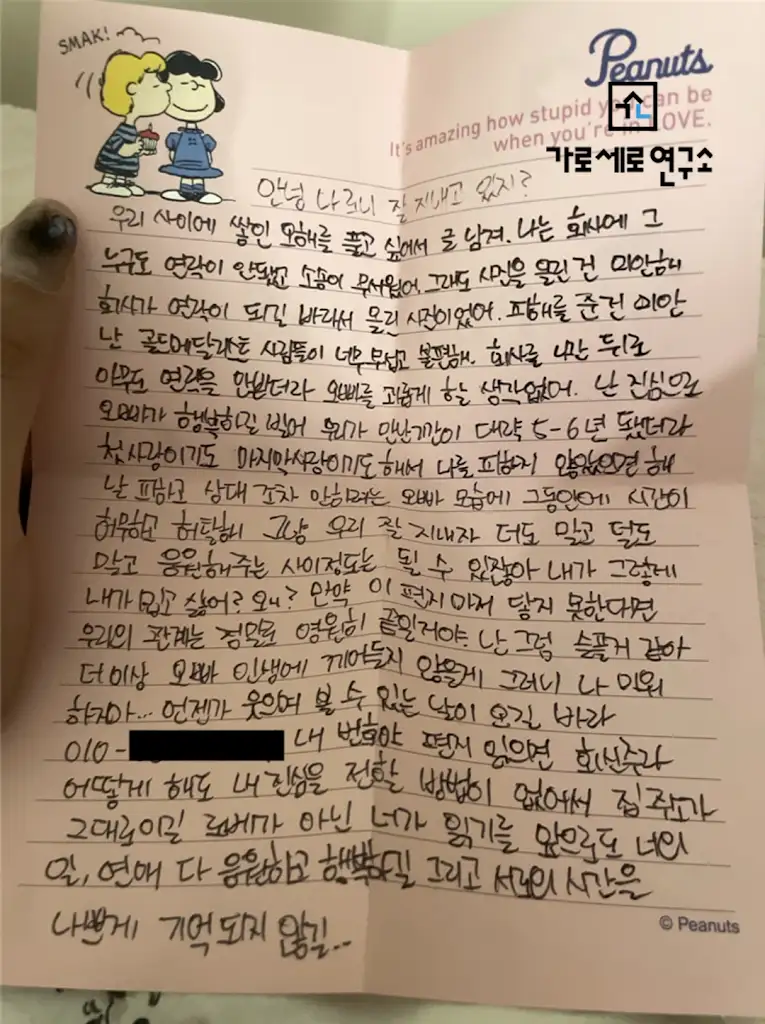 SMAK!
Peanuts
It's amazing how stupid you can be
when you're in LOVE.
가로세로연구소
안녕 나 르니 잘 지내고 있지?
우리 사이에 쌓인 오해를 풀고 싶어서 글 남겨. 나는 회사에 그
누구도 연락이 안됐고 소송이 무서웠어. 그래도 사진을 올린건 미안해
회사가 연락이 되길 바래서 올린 사진이었어. 피해를 준건 미안
난 골드메달리스트 사람들이 너무 무섭고 불편해. 회사를 나간 뒤로
아무도 연락을 안받더라 오빠를 괴롭게 할 생각없어. 난 진심으로
오빠가 행복하길 빌어 우리가 만난기간이 대략 5-6년 됐더라
첫사랑이기도 마지막사랑이기도해서 나를 피하지 않았으면 해
날 피하고 상대 조차 안하려는 오빠 모습에 그동안에 시간이
허무하고 허탈해 그냥 우리 잘 지내자 더도 말고 덜도
말고 응원해주는 사이정도는 될 수 있잖아 내가 그렇게
내가 밉고 싫어? 왜? 만약 이 편지마저 닿지 못한다면
우리의 관계는 정말로 영원히 끝일거야. 난 그럼 슬플거 같아
더이상 오빠 인생에 끼어들지 않을게 그러니 나 미워
하지마... 언젠가 웃으며 볼 수 있는 날이 오길 바라
010- 내 번호야 편지 읽으면 회신주라
어떻게 해도 내 진심을 전할 방법이 없어서 집주소가
그대로이길 로베가 아닌 너가 읽기를 앞으로도 너의
일, 연애 다 응원하고 행복하길 그리고 서로의 시간을
나쁘게 기억되지 않길..
© Peanuts